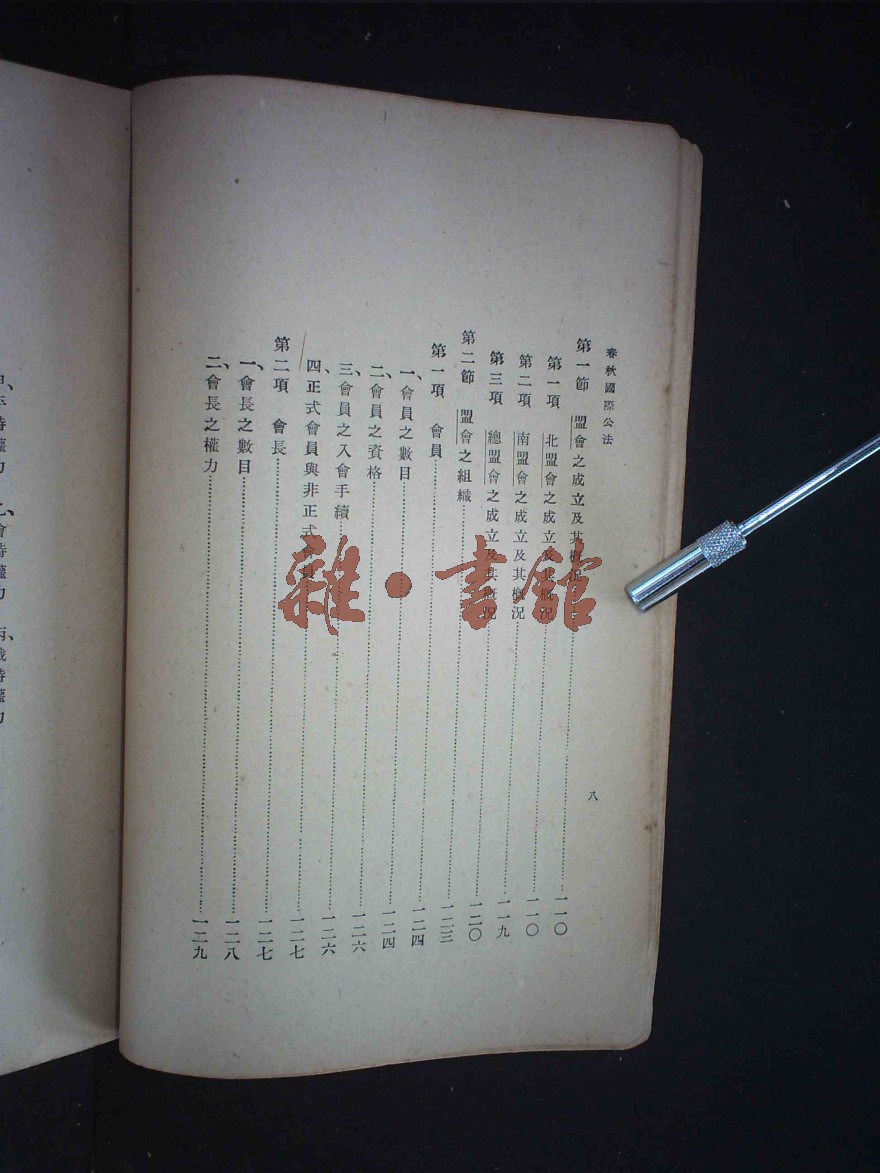 春秋國際公法 八
第一節 盟會之成立及其概況……一一〇
第一項 北盟會之成立及其概況……一一〇
第二項 南盟會之成立及其概況……一一九
第三項 總盟會之成立及其概況……一二〇
第二節 盟會之組織……一二三
第一項 會員……一二四
一、會員之數目……一二四
二、會員之資格……一二六
三、會員之入會手續……一二六
四、正式會員與非正式會員……一二七
第二項 會長……一二七
一、會長之數目……一二八
二、會長之權力……一二九
雜·書館